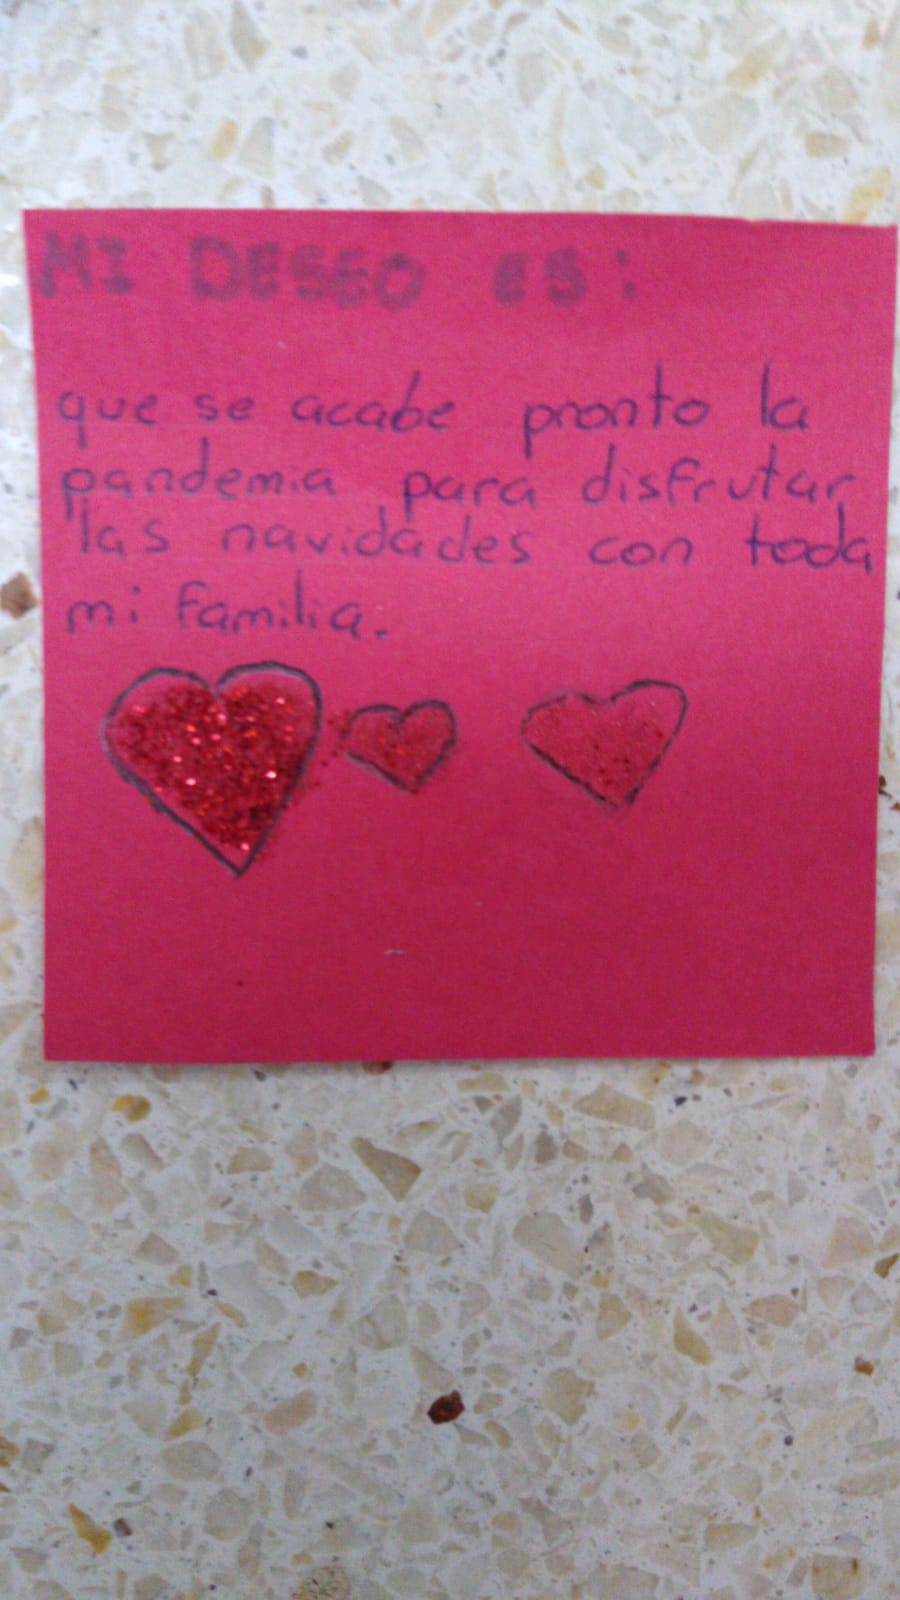 MI DESEO ES:
que se acabe pronto la
pandemia para disfrutar
las navidades con toda
mi familia.